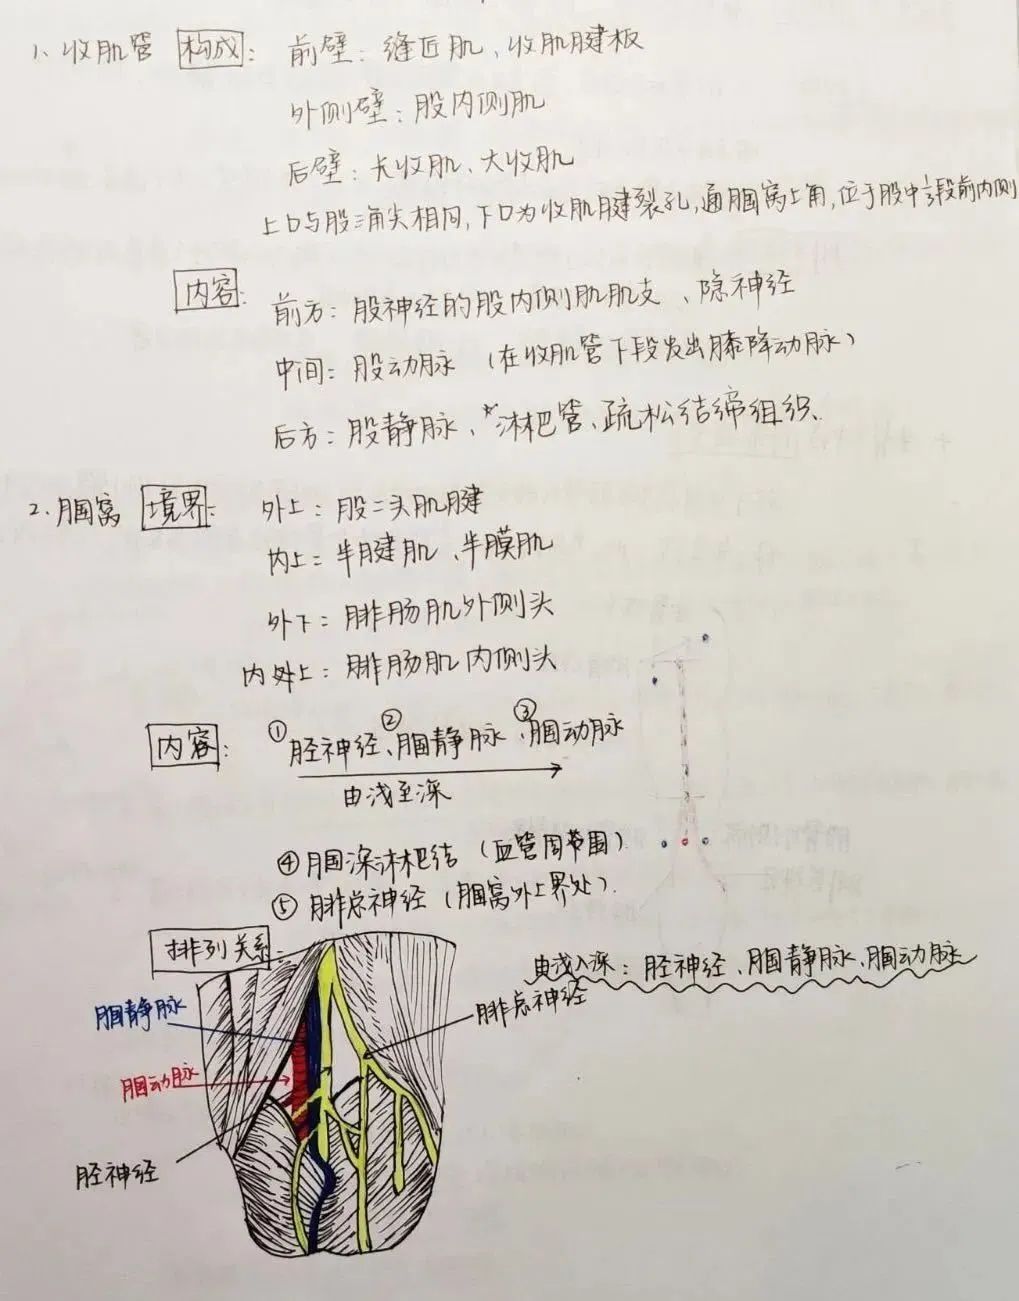 1、收肌管 构成：前壁：缝匠肌、收肌腱板
外侧壁：股内侧肌
后壁：长收肌、大收肌
上口与股三角尖相同，下口为收肌腱裂孔，通腘窝上角，位于股中⅓段前内侧
内容：前方：股神经的股内侧肌肌支、隐神经
中间：股动脉（在收肌管下段发出膝降动脉）
后方：股静脉、淋杷管、疏松结缔组织.
2、腘窝 境界：外上：股二头肌腱
内上：半腱肌、半膜肌
外下：腓肠肌外侧头
内上：腓肠肌内侧头
内容：①胫神经、②腘静脉、③腘动脉
由浅至深
④腘深淋杷结（血管周围）
⑤腓总神经（腘窝外上界处）.
排列关系：
由浅入深：胫神经、腘静脉、腘动脉
腘静脉
腓总神经
腘动脉
胫神经